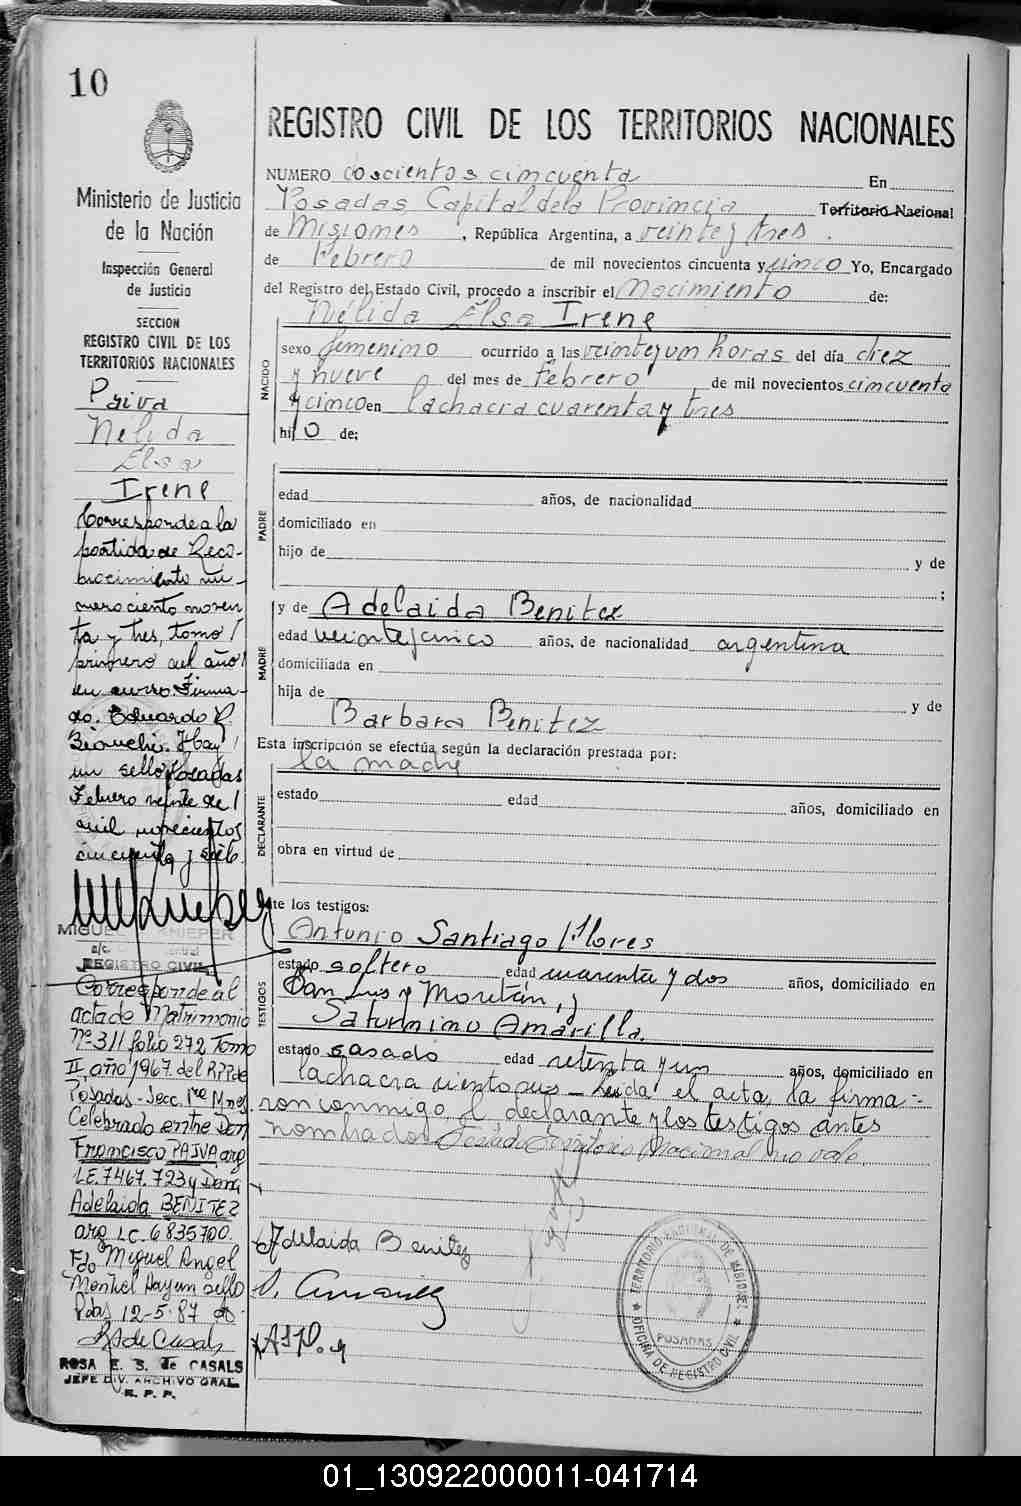 10
Ministerio de Justicia
de la Nación
Inspección General
de Justicia
SECCION
REGISTRO CIVIL DE LOS
TERRITORIOS NACIONALES
Paiva
Nelida
Elsa
Irene
Corresponde a la
partida de Reco-
nocimiento nú-
mero ciento noven
ta y tres, tomo
primero del año
en curso. Firma-
do. Eduardo R.
Bianchi. Hay
un sello Posadas
Febrero veinte de
mil novecientos
cincuenta y siete.
MIGUEL KNIEPER
a/c.
REGISTRO CIVIL
Corresponde al
acta de Matrimonio
Nº 311 folio 272 Tomo
II, año 1967 del R.P.P. de
Posadas - Secc. 1ra Mnes
Celebrado entre Don
Francisco PAIVA arg
L.E. 7467.723 y Doña
Adelaida BENITEZ
arg L.C. 6835700.
Fdo Miguel Angel
Montiel Hay un sello
Pdas 12-5-87
R S de Casals
ROSA E. S. de CASALS
JEFE DIV. ARCHIVO GRAL.
R. P. P.
REGISTRO CIVIL DE LOS TERRITORIOS NACIONALES
NUMERO doscientos cincuenta En
Posadas Capital de la Provincia Territorio Nacional
de Misiones, República Argentina, a veinte y tres.
de Febrero de mil novecientos cincuenta y cinco Yo, Encargado
del Registro del Estado Civil, procedo a inscribir el Nacimiento de:
Nélida Elsa Irene
NACIDO
sexo femenino ocurrido a las veinte y un horas del día diez
y nueve del mes de Febrero de mil novecientos cincuenta
y cinco en la chacra cuarenta y tres
hijo de;
PADRE
edad años, de nacionalidad
domiciliado en
hijo de y de
;
MADRE
y de Adelaida Benitez
edad veinte y cinco años, de nacionalidad argentina
domiciliada en
hija de y de
Barbara Benitez
Esta inscripción se efectúa según la declaración prestada por:
la madre
DECLARANTE
estado edad años, domiciliado en
obra en virtud de
te los testigos:
TESTIGOS
Antonio Santiago Flores
estado soltero edad cuarenta y dos años, domiciliado en
San Luis y Moritán, y
Saturnino Amarilla.
estado casado edad setenta y un años, domiciliado en
la chacra ciento seis - Leida el acta, la firma-
ron conmigo, el declarante y los testigos antes
nombrados Testado Territorio Nacional no vale.
Adelaida Benitez
S. Amarilla
TERRITORIO NACIONAL DE MISIONES
POSADAS
OFICINA DE REGISTRO CIVIL
01_130922000011-041714